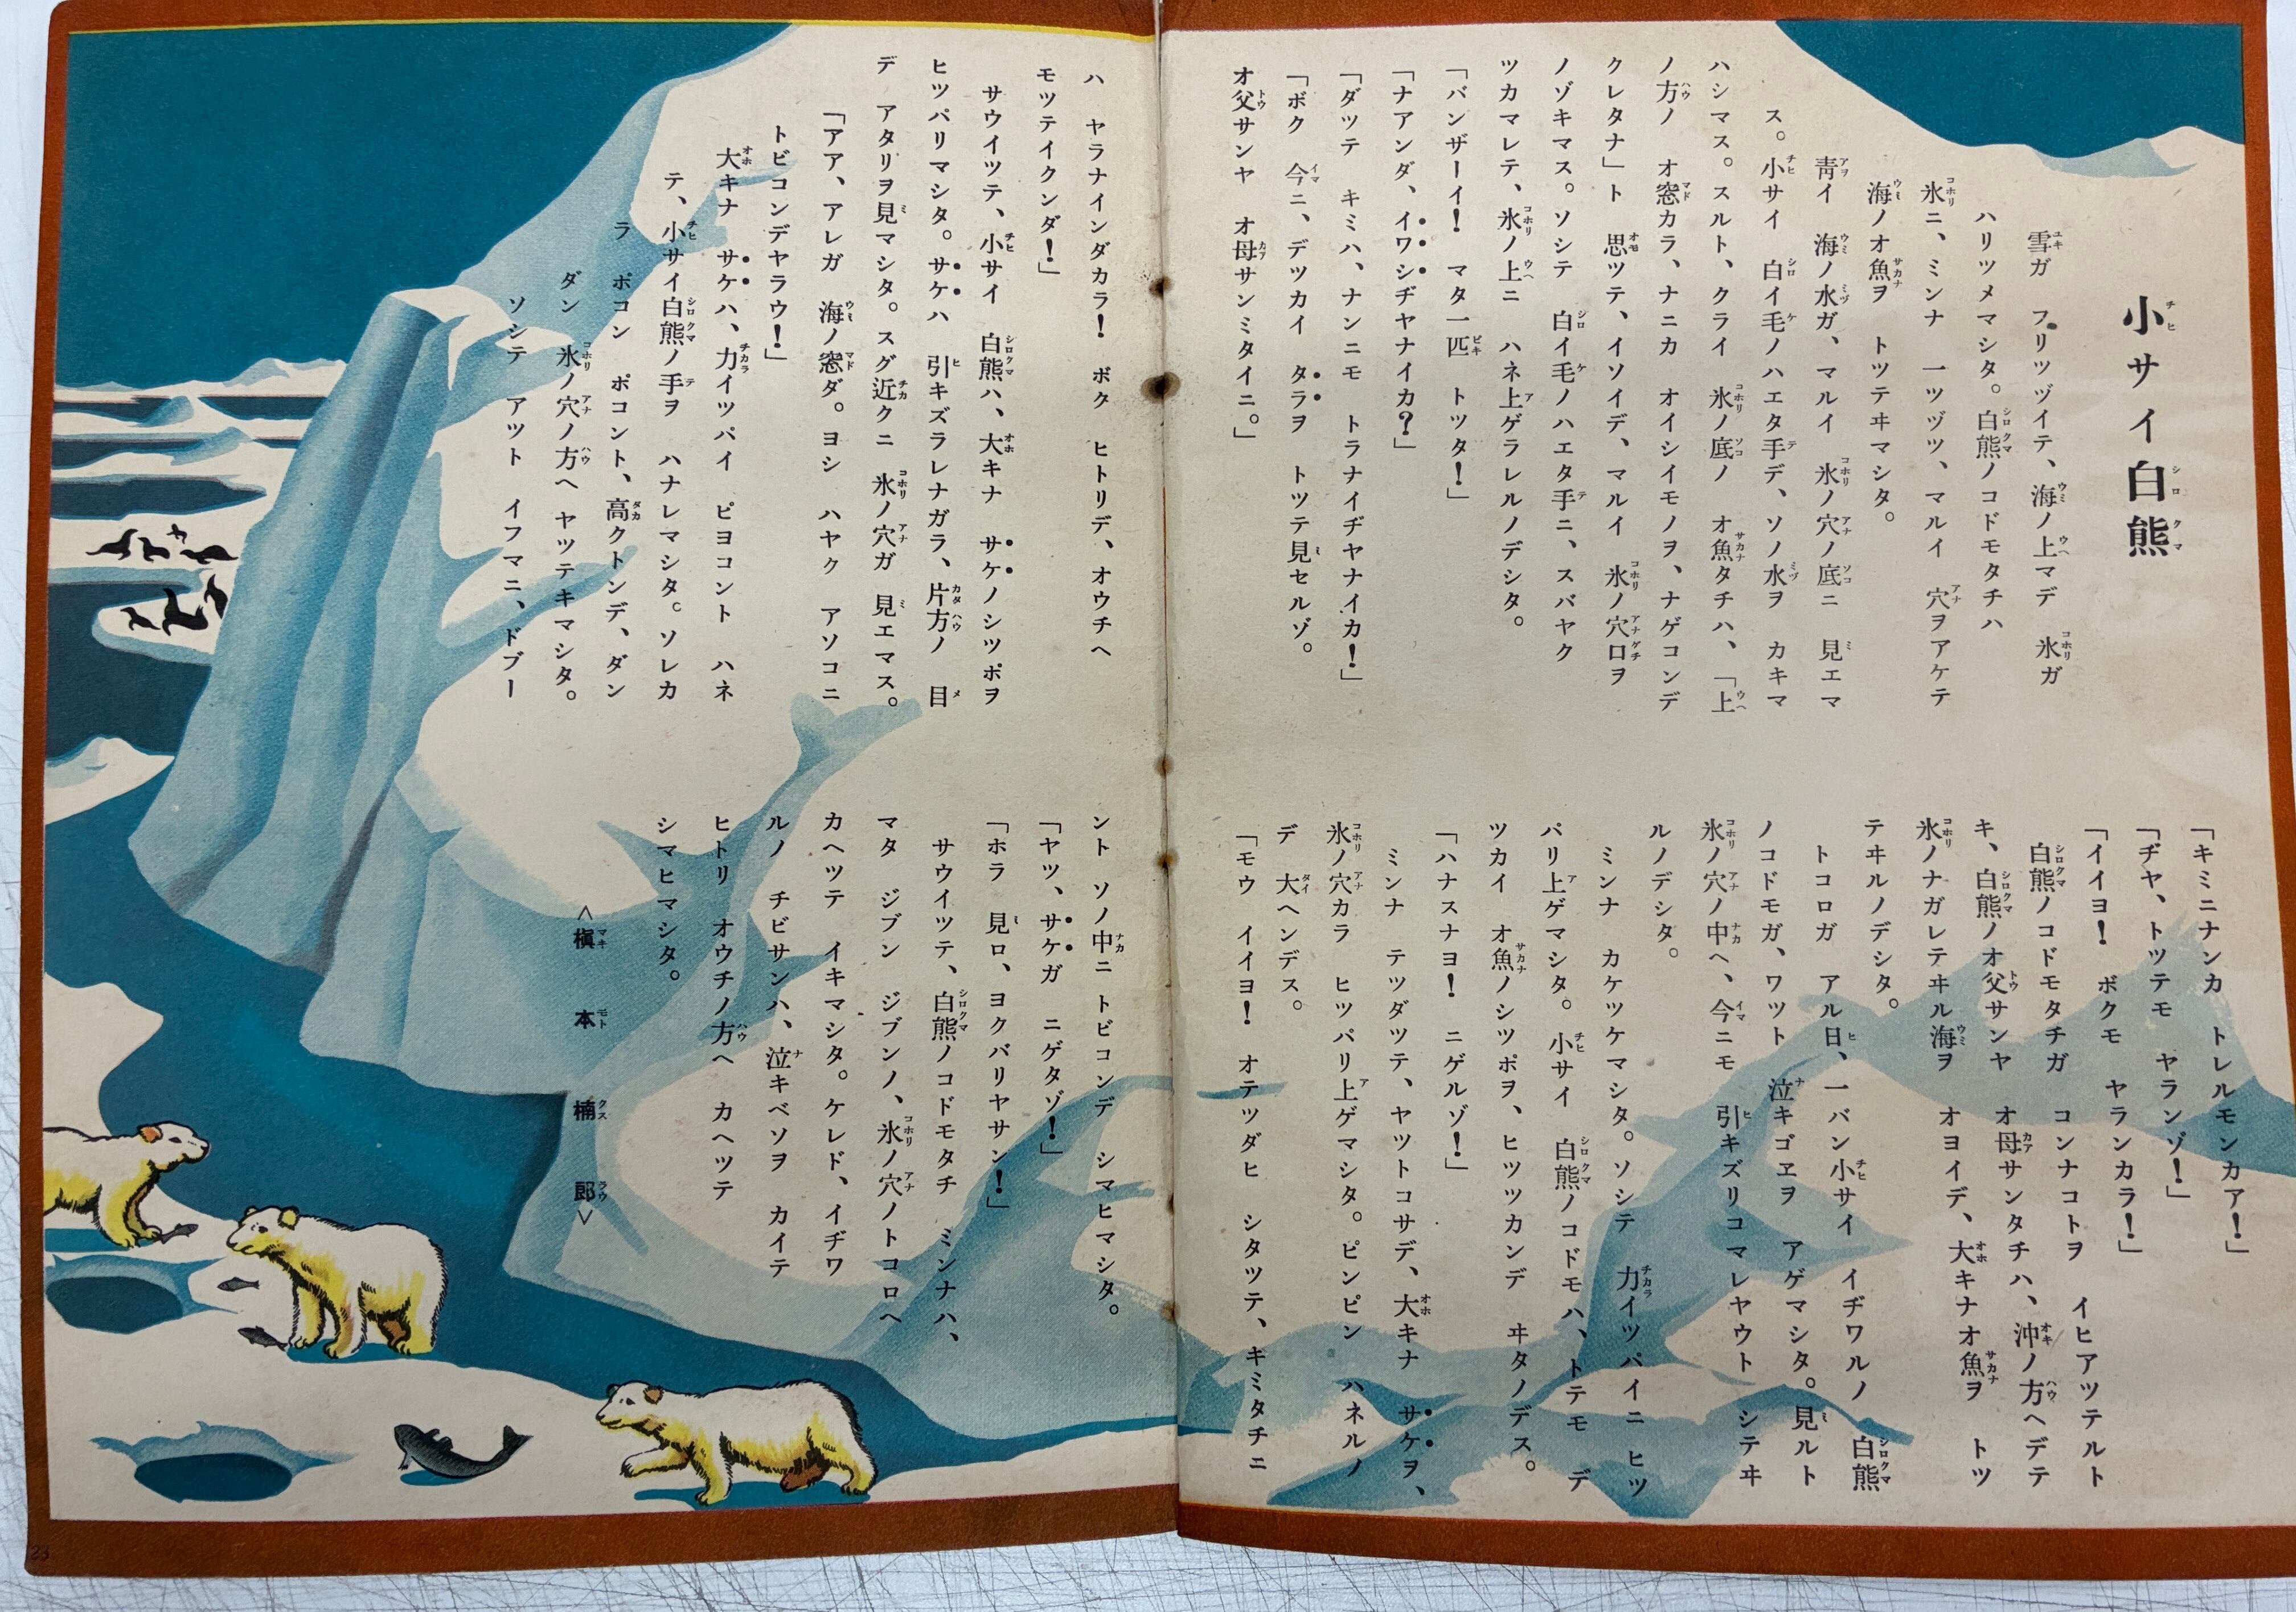 小サイ白熊
雪ガ フリツヅイテ、海ノ上マデ 氷ガ
ハリツメマシタ。白熊ノコドモタチハ
氷ニ、ミンナ 一ツヅツ、マルイ 穴ヲアケテ
海ノオ魚ヲ トツテヰマシタ。
青イ 海ノ水ガ、マルイ 氷ノ穴ノ底ニ 見エマ
ス。小サイ 白イ毛ノハエタ手デ、ソノ水ヲ カキマ
ハシマス。スルト、クライ 氷ノ底ノ オ魚タチハ、「上
ノ方ノ オ窓カラ、ナニカ オイシイモノヲ、ナゲコンデ
クレタナ」ト 思ツテ、イソイデ、マルイ 氷ノ穴口ヲ
ノゾキマス。ソシテ 白イ毛ノハエタ手ニ、スバヤク
ツカマレテ、氷ノ上ニ ハネ上ゲラレルノデシタ。
「バンザーイ! マタ一匹 トツタ!」
「ナアンダ、イワシヂヤナイカ?」
「ダツテ キミハ、ナンニモ トラナイヂヤナイカ!」
「ボク 今ニ、デツカイ タラヲ トツテ見セルゾ。
オ父サンヤ オ母サンミタイニ。」
「キミニナンカ トレルモンカア!」
「ヂヤ、トツテモ ヤランゾ!」
「イイヨ! ボクモ ヤランカラ!」
白熊ノコドモタチガ コンナコトヲ イヒアツテルト
キ、白熊ノオ父サンヤ オ母サンタチハ、沖ノ方ヘデテ
氷ノナガレテヰル海ヲ オヨイデ、大キナオ魚ヲ トツ
テヰルノデシタ。
トコロガ アル日、一バン小サイ イヂワルノ 白熊
ノコドモガ、ワツト 泣キゴヱヲ アゲマシタ。見ルト
氷ノ穴ノ中ヘ、今ニモ 引キズリコマレヤウト シテヰ
ルノデシタ。
ミンナ カケツケマシタ。ソシテ 力イツパイニ ヒツ
パリ上ゲマシタ。小サイ 白熊ノコドモハ、トテモ デ
ツカイ オ魚ノシツポヲ、ヒツツカンデ ヰタノデス。
「ハナスナヨ! ニゲルゾ!」
ミンナ テツダツテ、ヤツトコサデ、大キナ サケヲ、
氷ノ穴カラ ヒツパリ上ゲマシタ。ピンピン ハネルノ
デ 大ヘンデス。
「モウ イイヨ! オテツダヒ シタツテ、キミタチニ
ハ ヤラナインダカラ! ボク ヒトリデ、オウチヘ
モツテイクンダ!」
サウイツテ、小サイ 白熊ハ、大キナ サケノシツポヲ
ヒツパリマシタ。サケハ 引キズラレナガラ、片方ノ 目
デ アタリヲ見マシタ。スグ近クニ 氷ノ穴ガ 見エマス。
「アア、アレガ 海ノ窓ダ。ヨシ ハヤク アソコニ
トビコンデヤラウ!」
大キナ サケハ、力イツパイ ピヨコント ハネ
テ、小サイ白熊ノ手ヲ ハナレマシタ。ソレカ
ラ ポコン ポコント、高クトンデ、ダン
ダン 氷ノ穴ノ方ヘ ヤツテキマシタ。
ソシテ アツト イフマニ、ドブー
ント ソノ中ニ トビコンデ シマヒマシタ。
「ヤツ、サケガ ニゲタゾ!」
「ホラ 見ロ、ヨクバリヤサン!」
サウイツテ、白熊ノコドモタチ ミンナハ、
マタ ジブン ジブンノ、氷ノ穴ノトコロヘ
カヘツテ イキマシタ。ケレド、イヂワ
ルノ チビサンハ、泣キベソヲ カイテ
ヒトリ オウチノ方ヘ カヘツテ
シマヒマシタ。
<槇本楠郎>
23